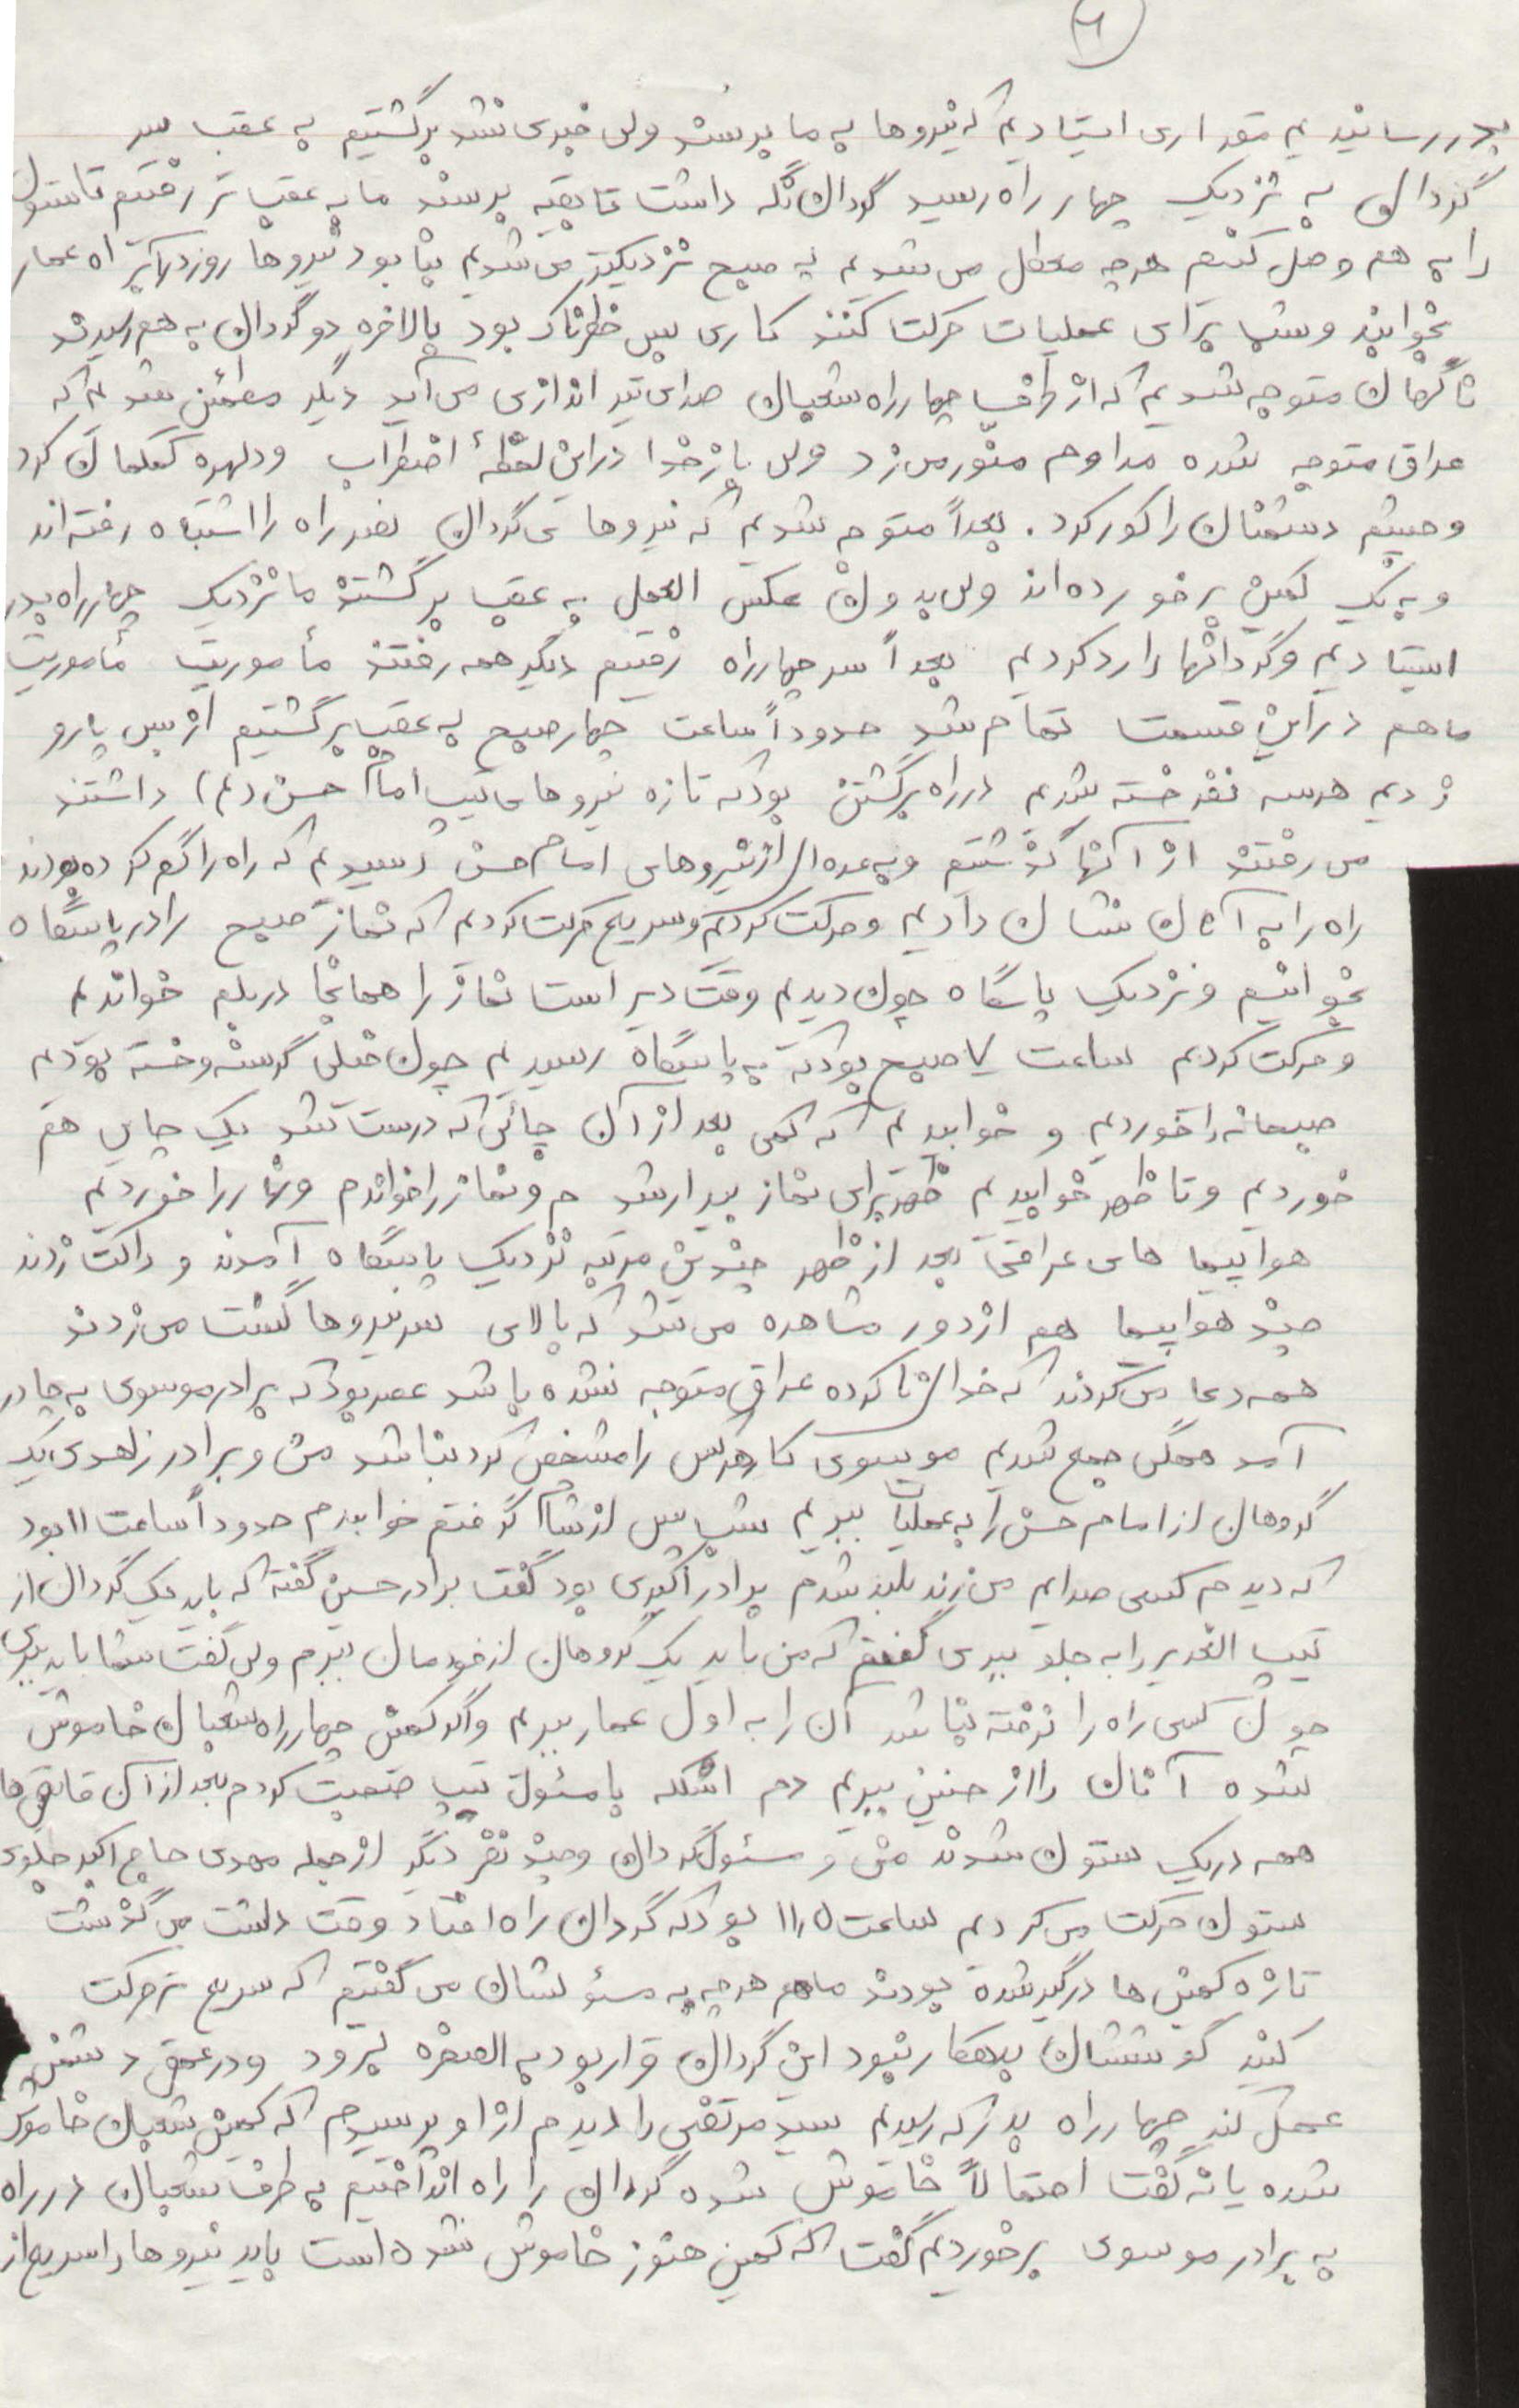 ۶
بدر رسانیدیم مقداری ایستادیم که نیروها به ما برسند ولی خبری نشد برگشتیم به عقب سر
گردان به نزدیک چهار راه رسید گردان نگه داشت تا بقیه برسند ما به عقب تر رفتیم تا ستون
را به هم وصل کنیم هرچه معطل می شدیم به صبح نزدیکتر می شدیم بنا بود نیروها روز در آبراه عمار
بخوابند و شب برای عملیات حرکت کنند کاری بس خطرناک بود بالاخره دو گردان به هم رسیدند
ناگهان متوجه شدیم که از طرف چهارراه شعبان صدای تیراندازی می آید دیگر مطمئن شدیم که
عراق متوجه شده مداوم منور می زد ولی باز خدا در این لحظهٔ اضطراب و دلهره کمکمان کرد
و چشم دشمنان را کور کرد. بعداً متوجه شدیم که نیروهای گردان نصر راه را اشتباه رفته اند
و به یک کمین برخورده اند ولی بدون عکس العمل به عقب برگشتند ما نزدیک چهارراه بدر
ایستادیم و گردانها را رد کردیم بعداً سر چهارراه رفتیم دیگر همه رفتند مأموریت مأموریت
ما هم در این قسمت تمام شد حدوداً ساعت چهار صبح به عقب برگشتیم از بس پارو
زدیم هر سه نفر خسته شدیم در راه برگشتن بود که تازه نیروهای تیپ امام حسن (ع) داشتند
می رفتند از آنها گذشتیم و به عده ای از نیروهای امام حسن رسیدیم که راه را گم کرده بودند
راه را به آنان نشان دادیم و حرکت کردیم و سریع حرکت کردیم که نماز صبح را در پاسگاه
بخوانیم و نزدیک پاسگاه چون دیدیم وقت دیر است نماز را همانجا در بلم خواندیم
و حرکت کردیم ساعت ۷ صبح بود که به پاسگاه رسیدیم چون خیلی گرسنه و خسته بودیم
صبحانه را خوردیم و خوابیدیم که کمی بعد از آن چائی که درست شد یک چایی هم
خوردیم و تا ظهر خوابیدیم ظهر برای نماز بیدار شدم و نماز را خواندم و نهار را خوردیم
هواپیما های عراقی بعد از ظهر چندین مرتبه نزدیک پاسگاه آمدند و راکت زدند
چند هواپیما هم از دور مشاهده می شد که بالای سر نیروها گشت می زدند
همه دعا می کردند که خدای نا کرده عراق متوجه نشده باشد عصر بود که برادر موسوی به چادر
آمد همگی جمع شدیم موسوی کار هرکس را مشخص کرد بنا شد من و برادر زاهدی یک
گروهان از امام حسن را به عملیات ببریم شب پس از شام گرفتم خوابیدم حدوداً ساعت ۱۱ بود
که دیدم کسی صدایم می زند بلند شدم برادر اکبری بود گفت برادر حسین گفته که باید یک گردان از
تیپ الغدیر را به جلو ببری گفتم که من باید یک گروهان از خودمان ببرم ولی گفت شما باید ببری
چون کسی راه را نرفته بنا شد آن را به اول عمار ببریم و اگر کمین چهارراه شعبان خاموش
شده آنان را از حنین ببریم دم اسکله با مسئول تیپ صحبت کردم بعد از آن قایق ها
همه در یک ستون شدند من و مسئول گردان و چند نفر دیگر از جمله مهدی حاج اکبر جلوی
ستون حرکت می کردیم ساعت ۱۱٫۵ بود که گردان راه افتاد وقت داشت می گذشت
تازه کمین ها درگیر شده بودند ما هم هرچه به مسئولشان می گفتیم که سریع تر حرکت
کنید گوششان بدهکار نبود این گردان قرار بود به الصخره برود و در عمق دشمن
عمل کند چهارراه بدر که رسیدیم سید مرتضی را دیدم از او پرسیدم که کمین شعبان خاموش
شده یا نه گفت احتمالاً خاموش شده گردان را راه انداختیم به طرف شعبان در راه
به برادر موسوی برخوردیم گفت که کمین هنوز خاموش نشده است باید نیروها را سریع از